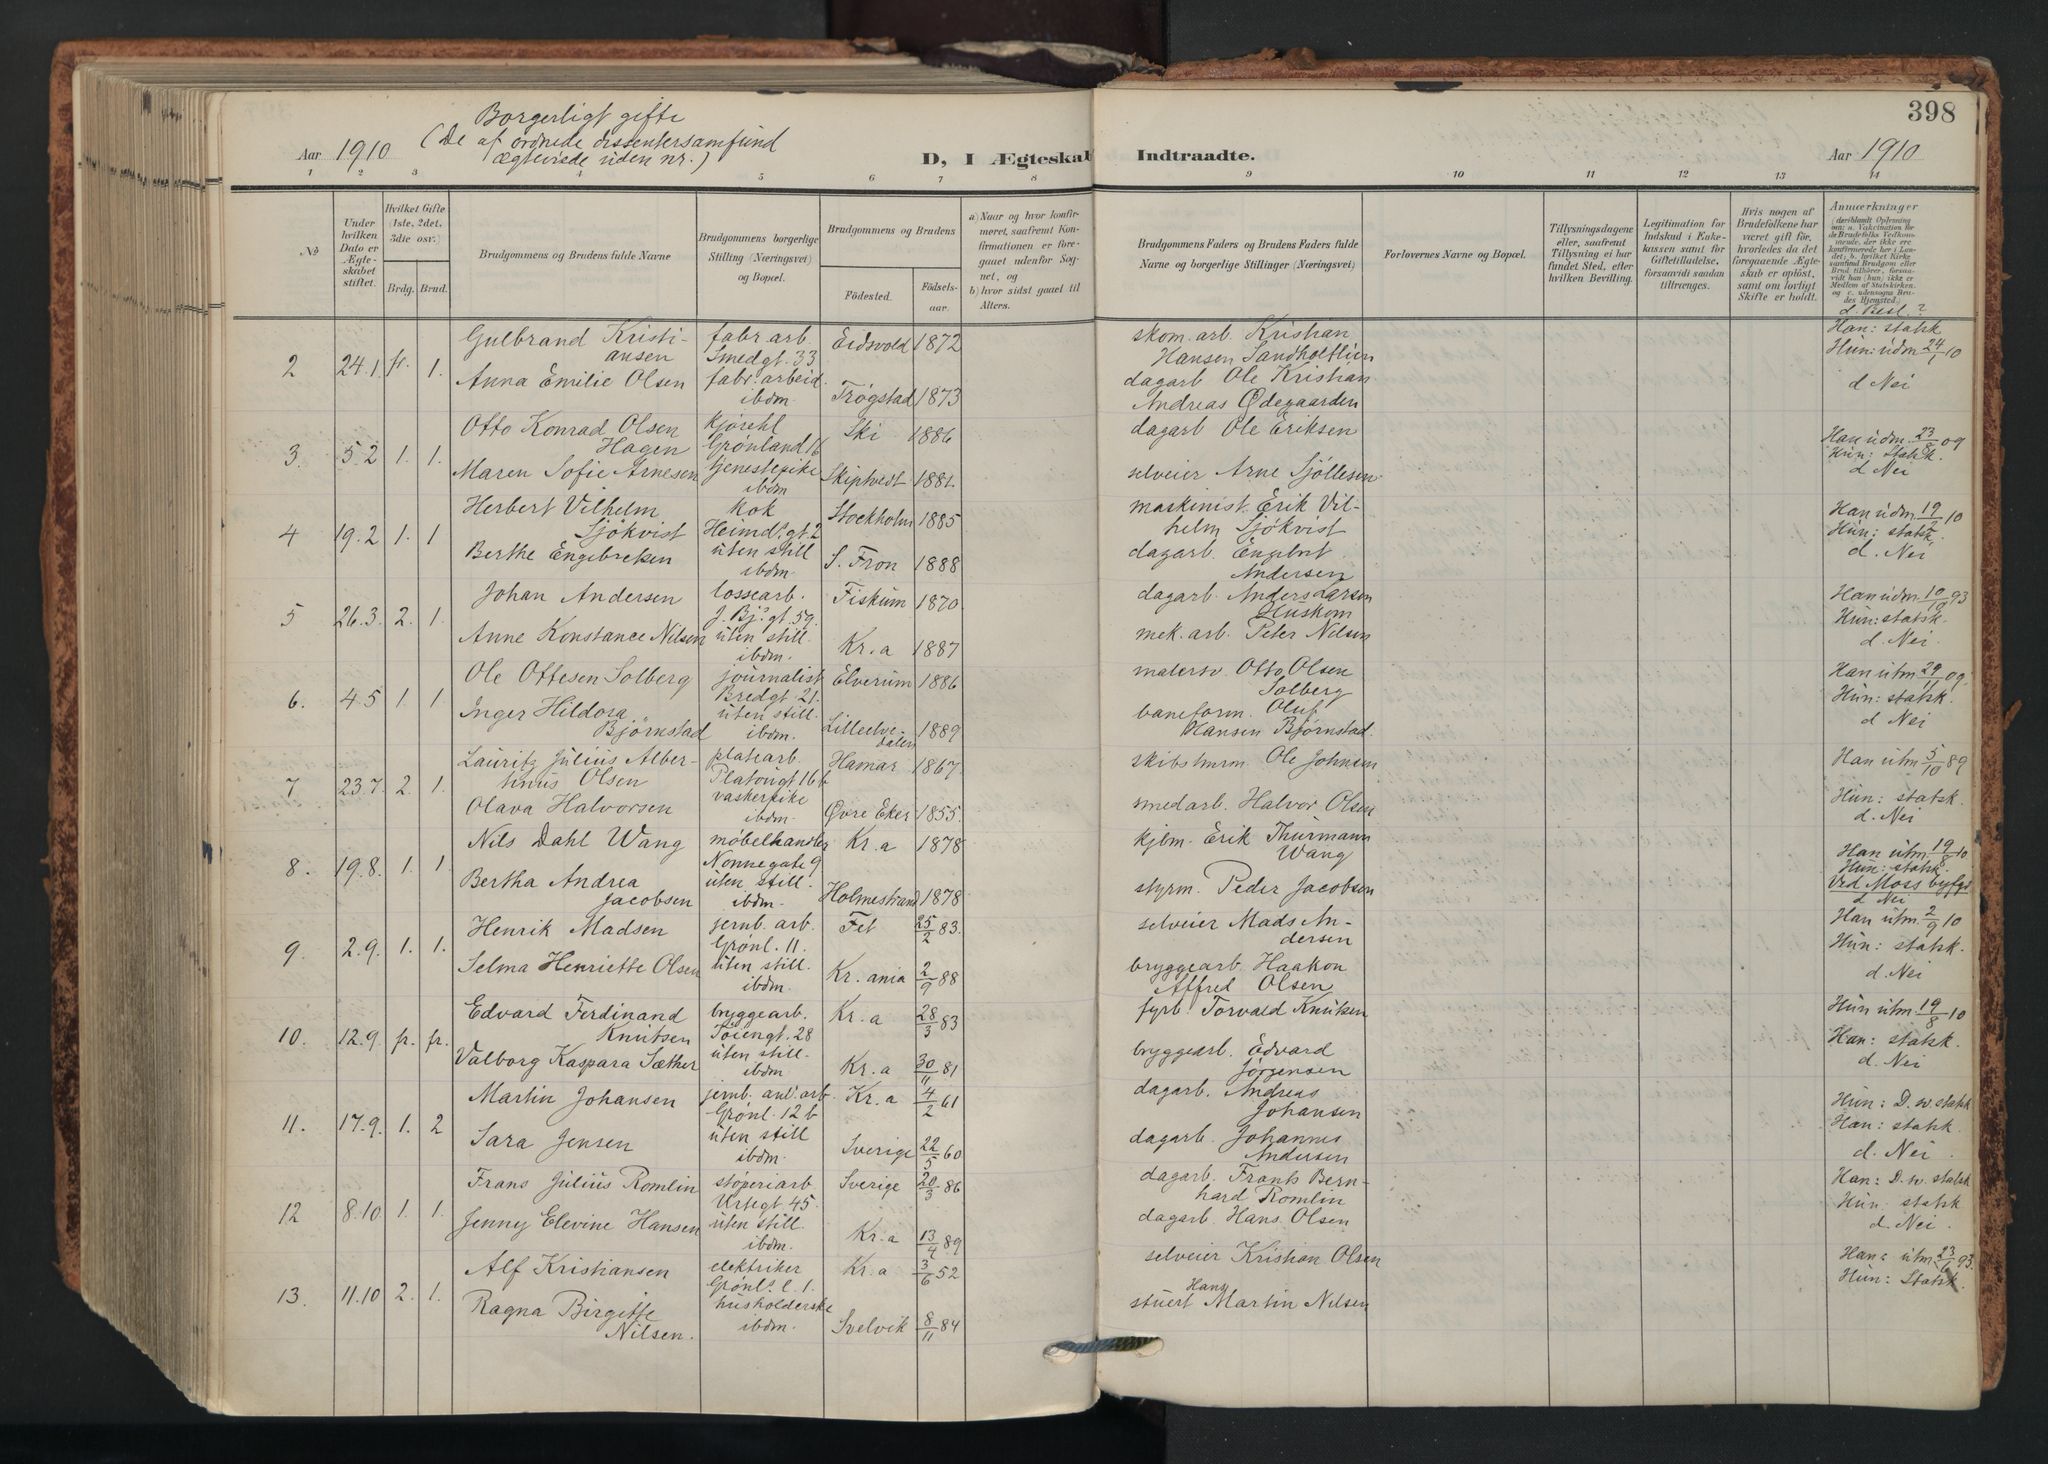 398
Borgerligt gifte
Aar 1910 (De af ordnede dissentersamfund
ægteviede uden nr.)
D, I Ægteskab Indtraadte.
Aar 1910
1 2 3 4 5 6 7 8 9 10 11 12 13 14
No
Under hvilken Dato er Ægteskabet stiftet.
Hvilket Gifte (1ste, 2det, 3die osv.)
Brdg. Brud.
Brudgommens og Brudens fulde Navne
Brudgommens borgerlige Stilling (Næringsvei) og Bopæl.
Brudgommens og Brudens
Födested. Födselsaar.
a) Naar og hvor konfirmeret, saafremt Konfirmationen er foregaaet udenfor Sognet, og
b) hvor sidst gaaet til Alters.
Brudgommens Faders og Brudens Faders fulde Navne og borgerlige Stillinger (Næringsvei)
Forlovernes Navne og Bopæl.
Tillysningsdagene eller, saafremt Tillysning ei har fundet Sted, efter hvilken Bevilling.
Legitimation for Indskud i Enkekassen samt for Giftetilladelse, forsaavidt saadan tiltrænges.
Hvis nogen af Brudefolkene har været gift för, hvorledes da det foregaaende Ægteskab er oplöst, samt om lovligt Skifte er holdt.
Anmærkninger (deriblandt Oplysning om: a. Vakcination for de Brudefolks Vedkommende, der ikke ere konfirmerede her i Landet; b. hvilket Kirkesamfund Brudgom eller Brud tilhörer, forsaavidt han (hun) ikke er Medlem af Statskirken, og c. udensogns Brudes Hjemsted.)
d. Besl.?
2 24.1. fr. 1. Gulbrand Kristiansen fabr. arb. Smedgt. 33 Eidsvold 1872 skom. arb. Kristian Hansen Sandholtlien Han: statsk Hun: udm 24/1 10
Anna Emilie Olsen fabr. arbeid. ibdm. Trøgstad 1873 dagarb Ole Kristian Andreas Ødegaarden d Nei
3. 5.2 1. 1. Otto Konrad Olsen Hagen kjørekl Grönland 16 Ski 1886 dagarb Ole Eriksen Han udm. 23/8 09 Hun: Statsk.
Maren Sofie Arnesen tjenestepike ibdm Skiptvedt 1881. selveier Arne Sjöllesen d Nei
4 19.2 1. 1 Herbert Vilhelm Sjökvist kok Heimd.gt. 2 Stockholm 1885 maskinist Erik Vilhelm Sjökvist Han udm 19/2 10 Hun: statsk.
Berthe Engebreksen uten still ibdm. S. Fron 1888 dagarb. Engebret Andersen d. Nei
5 26.3. 2. 1. Johan Andersen lossearb. J. Bj.s gt. 59. Fiskum 1870 dagarb. Anders Larsen Huskom Han udm 10/10 93 Hun: statsk.
Anne Konstance Nilsen uten still. ibdm. Kr.a 1887 mek. arb. Peter Nilsen d. Nei
6. 4.5 1. 1 Ole Ottesen Solberg journalist Bredgt. 21. Elverum 1886 malersv Otto Olsen Solberg Han utm 29/11 09. Hun: statsk.
Inger Hildora Bjørnstad uten still. ibdm. Lilleelvedalen 1889 baneform. Oluf Hansen Bjørnstad. d Nei
7 23.7. 2. 1. Lauritz Julius Albertinius Olsen platearb. Platougt 16 b Hamar 1867. skibstmrm. Ole Johnsen Han utm 5/10 89
Olava Halvorsen vaskerpike ibdm. Øvre Eker 1855. smedarb. Halvor Olsen Hun: statsk. d. Nei
8. 19.8. 1. 1. Nils Dahl Wang møbelhandler Nonnegate 9 Kr.a 1878 kjbm. Erik Thurmann Wang Han utm. 19/8 10 Hun: statsk.
Bertha Andrea Jacobsen uten still. ibdm. Holmestrand 1878 styrm. Peder Jacobsen Ved Moss byfgd d Nei
9. 2.9. 1. 1. Henrik Madsen jernb. arb. Grønl. 11. Fet 25/2 83. selveier Mads Andersen Han utm 2/9 10 Hun: statsk.
Selma Henriette Olsen uten still. ibdm. Kr.ania 2/9 88 bryggearb. Haakon Alfred Olsen d. Nei
10. 12.9. fr. fr. Edvard Ferdinand Knutsen bryggearb. Töiengt. 28 Kr.a 28/3 83 fyrb. Torvald Knutsen Hun utm 19/8 10 Han: statsk.
Valborg Kaspara Sæther uten still. ibdm Kr.a 30/11 81 bryggearb. Edvard Jørgensen d. Nei
11. 17.9. 1. 2 Martin Johansen jernb. anl. arb. Grønl. 12 b Kr.a 4/2 61 dagarb. Andreas Johansen Hun: D. w. statsk Han: statsk
Sara Jensen uten still ibdm. Sverige 22/5 60 dagarb. Johannes Andersen d. Nei.
12 8.10. 1. 1. Frans Julius Romlin stöperiarb Urtegt 45 Sverige 20/3 86 dagarb. Frants Bernhard Romlin Han: D. w. statsk Hun: statsk
Jenny Elevine Hansen uten still. ibdm. Kr.a 13/4 89 dagarb. Hans Olsen d. Nei.
13. 11.10 2. 1. Alf Kristiansen elektriker Grønl.s l. 1 Kr.a 3/6 52 selveier Kristian Olsen Han: utm 23/6 93. Hun: Statsk.
Ragna Birgitte Nilsen. husholderske ibdm. Svelvik 8/11 84 stuert Hans Martin Nilsen